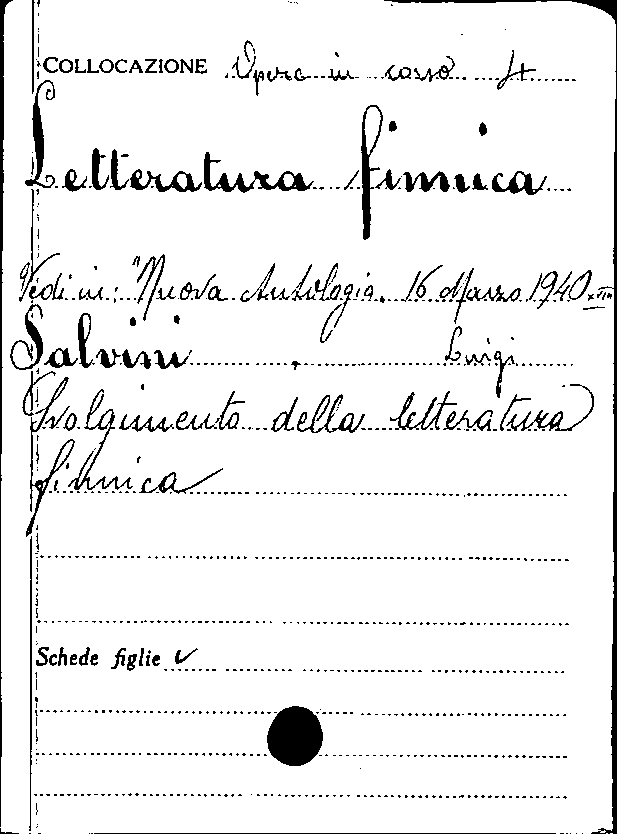 COLLOCAZIONE Opera in corso 4
Letteratura finnica
Vedi in: "Nuova Antologia. 16 Marzo 1940-XVIII
Salvini, Luigi
Svolgimento della letteratura
finnica
Schede figlie ✓